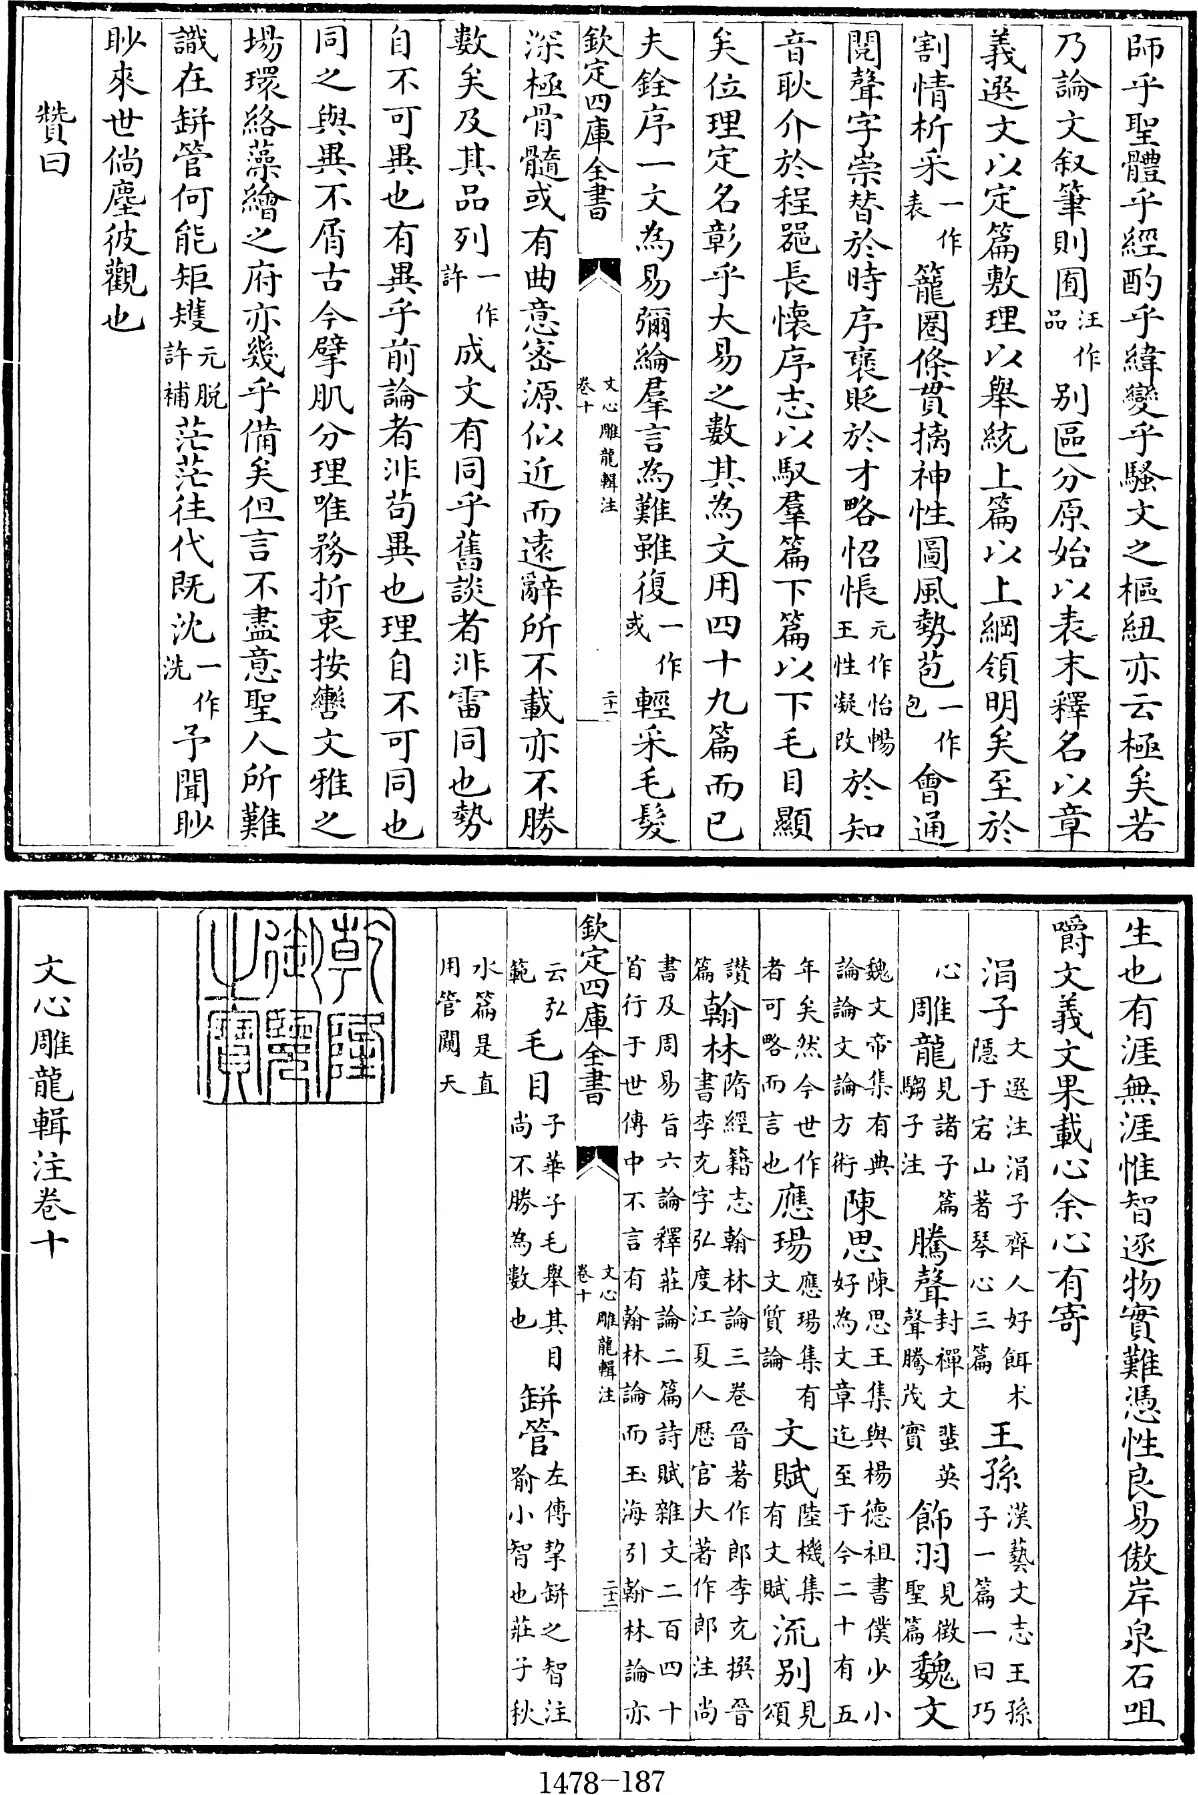 師乎聖體乎經酌乎緯變乎騷文之樞紐亦云極矣若
乃論文叙筆則囿汪作品别區分原始以表末釋名以章
義選文以定篇敷理以舉統上篇以上綱領明矣至於
割情析采一作表籠圈條貫摛神性圖風勢苞一作包會通
閱聲字崇替於時序褒貶於才略怊悵元作怡暢王性凝改於知
音耿介於程器長懷序志以馭羣篇下篇以下毛目顯
矣位理定名彰乎大易之數其為文用四十九篇而已
夫銓序一文為易彌綸羣言為難雖復一作或輕采毛髮
欽定四庫全書
文心雕龍輯注
卷十
二十一
深極骨髓或有曲意密源似近而遠辭所不載亦不勝
數矣及其品列一作許成文有同乎舊談者非雷同也勢
自不可異也有異乎前論者非苟異也理自不可同也
同之與異不屑古今擘肌分理唯務折衷按轡文雅之
場環絡藻繪之府亦幾乎備矣但言不盡意聖人所難
識在缾管何能矩矱元脱許補茫茫往代既沈一作洗予聞眇
眇來世倘塵彼觀也
贊曰
生也有涯無涯惟智逐物實難憑性良易傲岸泉石咀
嚼文義文果載心余心有寄
涓子文選注涓子齊人好餌术隱于宕山著琴心三篇王孫漢藝文志王孫子一篇一曰巧
心雕龍見諸子篇騶子注騰聲封禪文蜚英聲騰茂實飾羽見徵聖篇魏文
魏文帝集有典論論文論方術陳思陳思王集與楊德祖書僕少小好為文章迄至于今二十有五
年矣然今世作者可略而言也應瑒應瑒集有文質論文賦陸機集有文賦流别見頌
讚篇翰林隋經籍志翰林論三卷晉著作郎李充撰晉書李充字弘度江夏人歷官大著作郎注尚
書及周易旨六論釋莊論二篇詩賦雜文二百四十首行于世傳中不言有翰林論而玉海引翰林論亦
欽定四庫全書
文心雕龍輯注
卷十
二十二
云弘範毛目子華子毛舉其目尚不勝為數也缾管左傳挈缾之智注喻小智也莊子秋
水篇是直用管闚天
乾隆御覽之寶
文心雕龍輯注卷十
1478-187